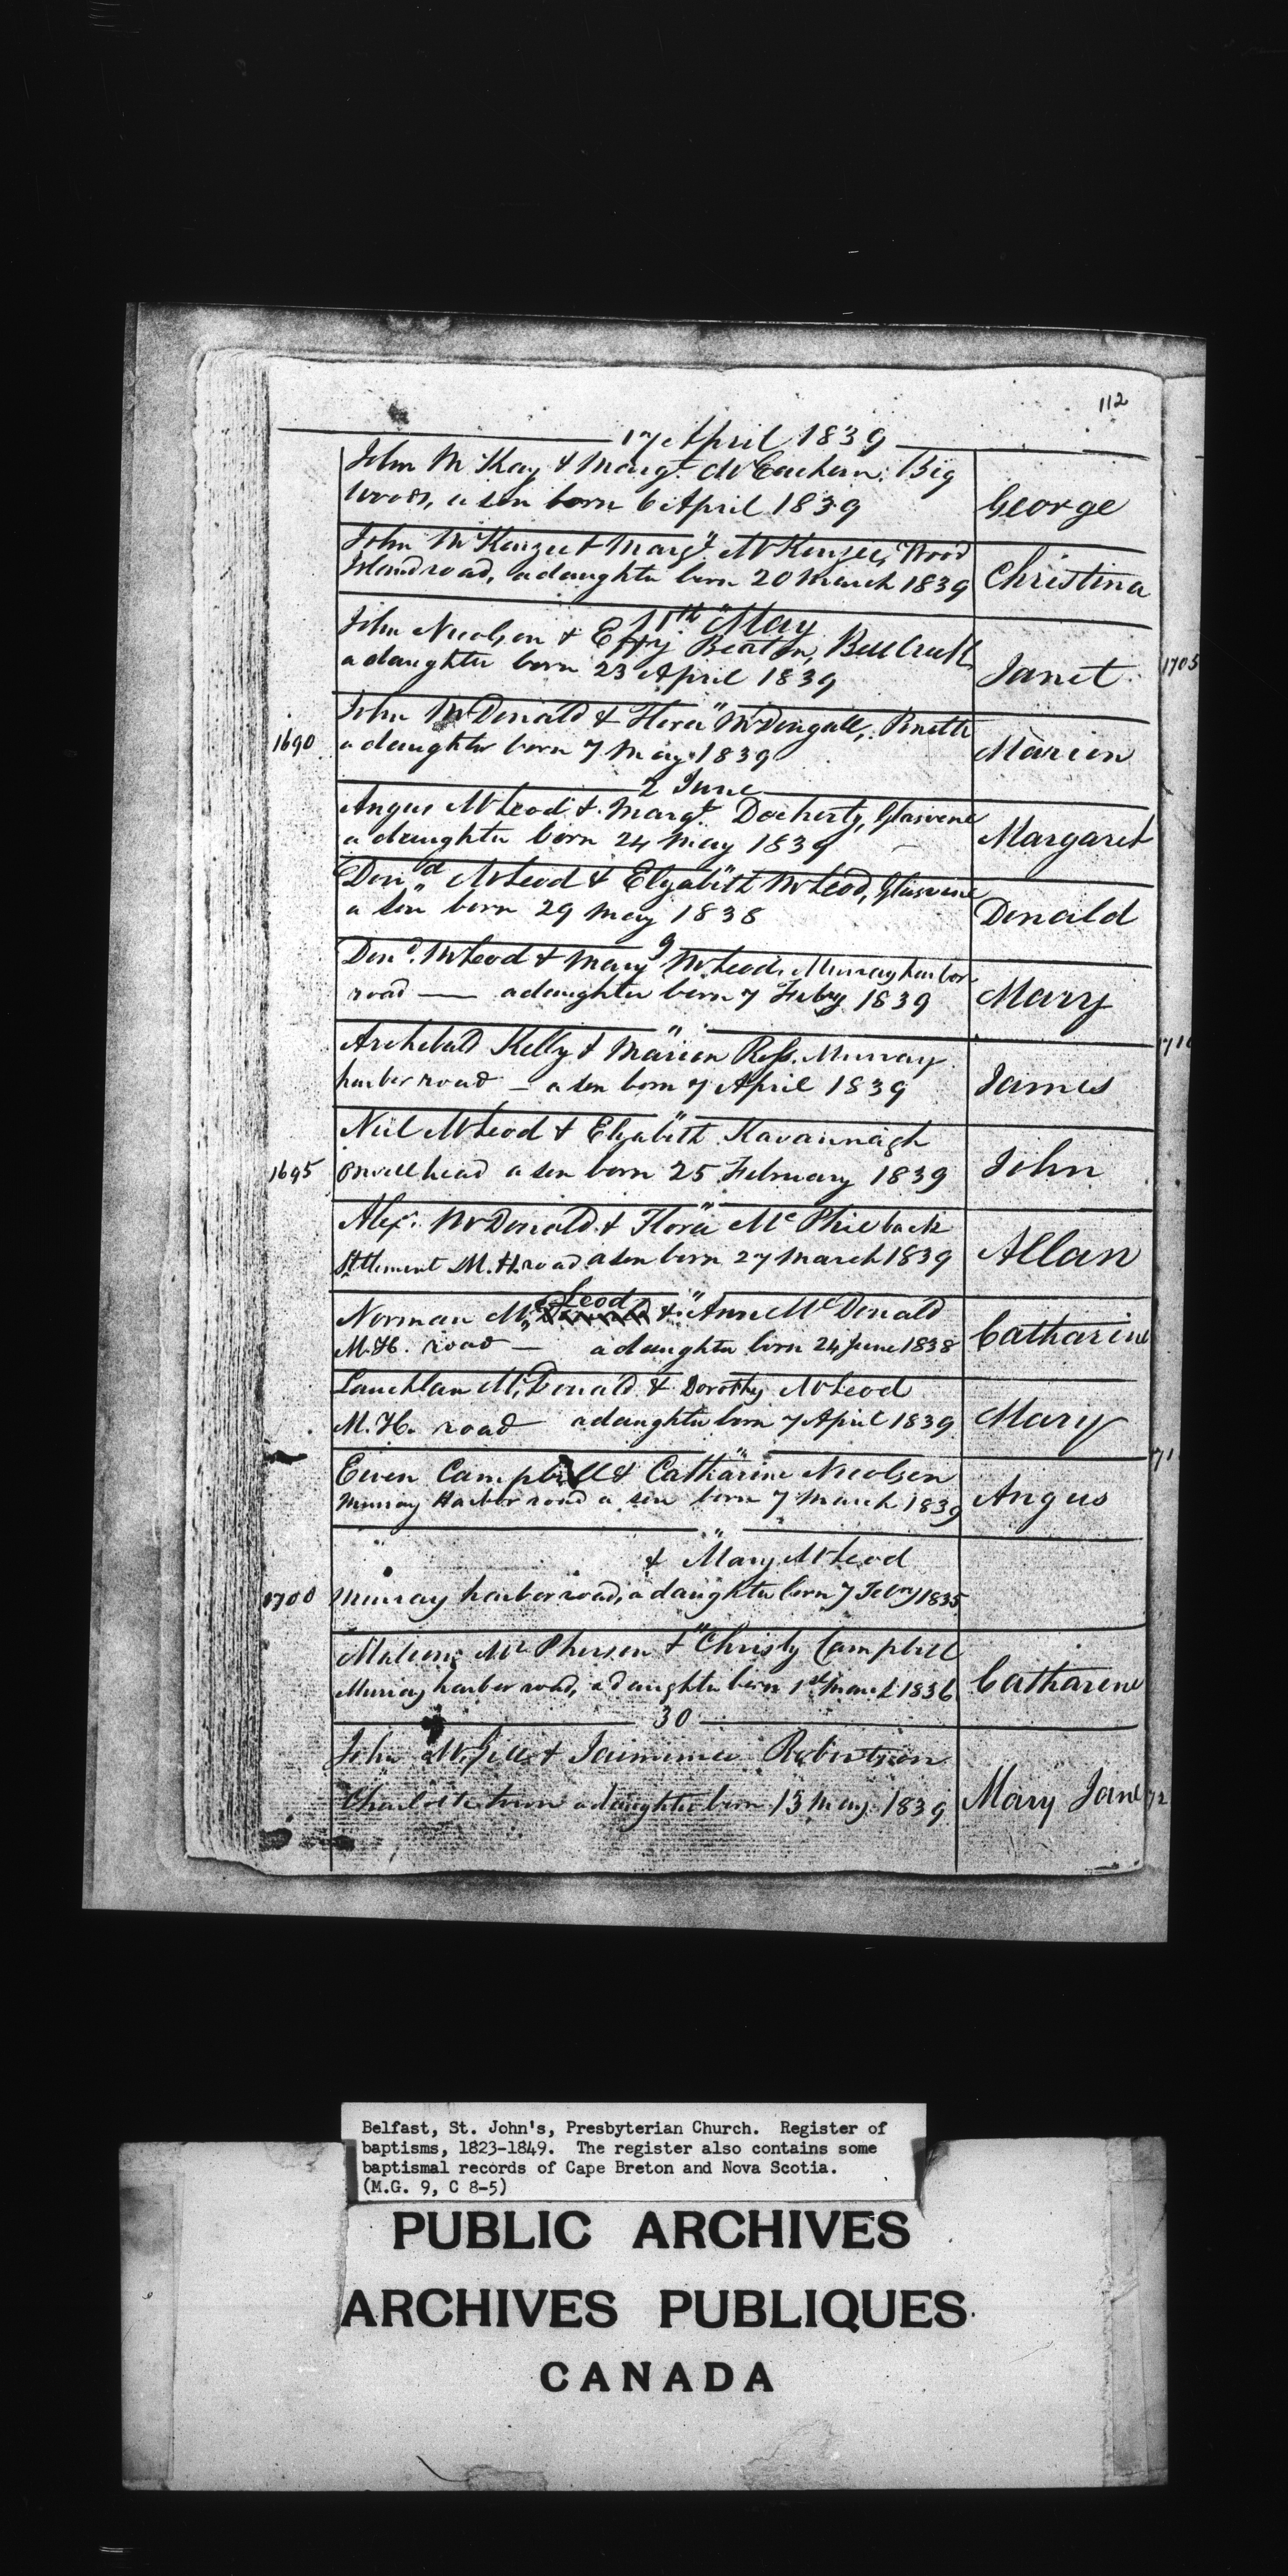 112
17 April 1839
John McKay & Margt. McEachern, Big
Woods, a son born 6 April 1839
George
John McKenzie & Margt. McKenzie, Wood
Island road, a daughter born 20 March 1839
Christina
11th May
John Nicolson & Effy Beaton, Bell Creek
a daughter born 23 April 1839
Janet
1705
John McDonald & Flora McDougall, Pinette
1690
a daughter born 7 May 1839
Marion
2 June
Angus McLeod & Margt. Docherty, Glasvine
a daughter born 24 May 1839
Margaret
Dond. McLeod & Elyabith McLeod, Glasvine
a son born 29 May 1838
Donald
9
Dond. McLeod & Mary McLeod, Murray harbor
road — a daughter born 7 Feby 1839
Mary
"
Archibald Kelly & Marion Ross, Murray
harbor road — a son born 7 April 1839
James
"
Neil McLeod & Elyabith Kavannagh
1695
Orwell head a son born 25 February 1839
John
"
Alexr. McDonald & Flora McPhie back
Settlement M. H. road a son born 27 March 1839
Allan
Leod "
Norman Mc & Ann McDonald
M. H. road — a daughter born 24 June 1838
Catharine
Lauchlan McDonald & Dorothy McLeod
M. H. road a daughter born 7 April 1839
Mary
"
Ewen Campbell & Catharine Nicolson
Murray Harbor road a son born 7 March 1839
Angus
"
& Mary McLeod
1700
Murray harbor road, a daughter born 7 Febry 1835
"
McPherson & Christy Campbell
Murray harbor road, a daughter born 1st March 1836
Catharine
30
John & Robertson
Charlottetown a daughter born 13 May 1839
Mary Jane
Belfast, St. John's, Presbyterian Church. Register of
baptisms, 1823-1849. The register also contains some
baptismal records of Cape Breton and Nova Scotia.
(M.G. 9, C 8-5)
PUBLIC ARCHIVES
ARCHIVES PUBLIQUES
CANADA